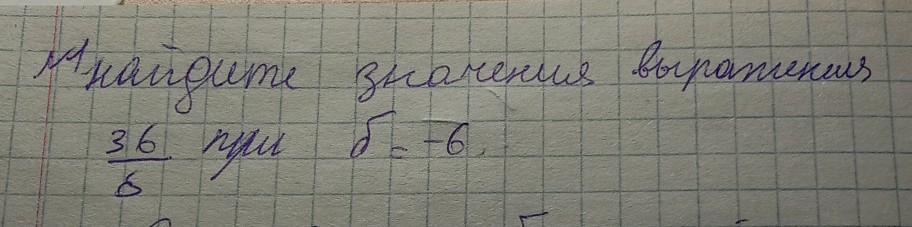 №1 найдите значения выражения
36/б при б = -6.